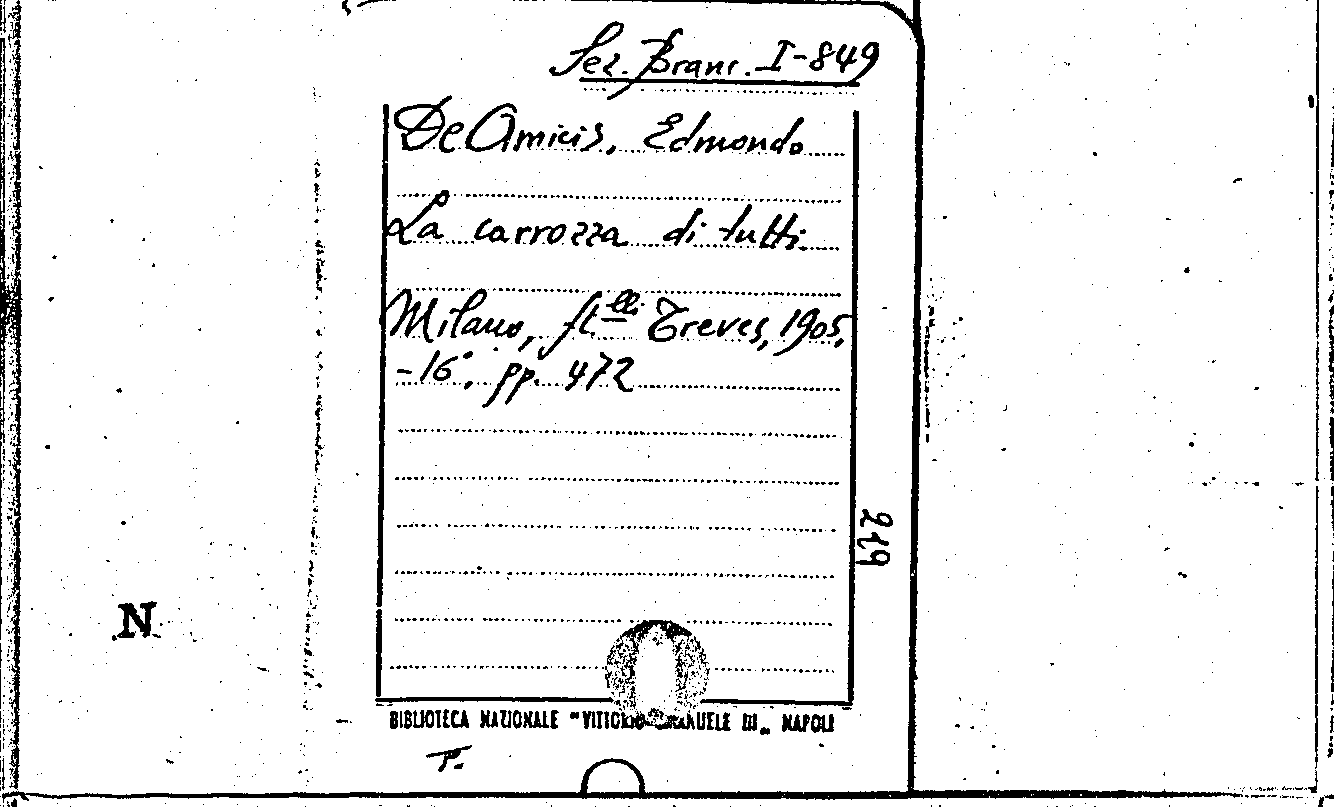 Sez. Branc. I-849
De Amicis, Edmondo
La carrozza di tutti.
Milano, f.lli Treves, 1905,
-16°, pp. 472
219
N
BIBLIOTECA NAZIONALE "VITTORIO EMANUELE III„ NAPOLI
T.